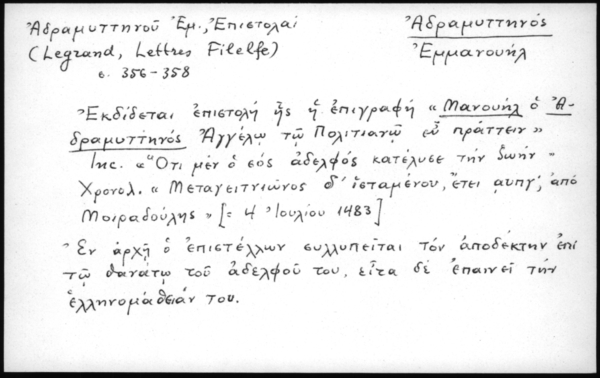 Ἀδραμυττηνοῦ Ἐμ., Ἐπιστολαί
(Legrand, Lettres Filelfe)
σ. 356-358
Ἀδραμυττηνός
Ἐμμανουήλ
Ἐκδίδεται ἐπιστολή ἧς ἡ ἐπιγραφή «Μανουήλ ὁ Ἀ-
δραμυττηνός Ἀγγέλῳ τῷ Πολιτιανῷ εὖ πράττειν»
Inc. «Ὅτι μέν ὁ ἑός ἀδελφός κατέλυσε τήν ζωήν»
Χρονολ. «Μεταγειτνιῶνος δ' ἱσταμένου, ἔτει αυπγ', ἀπό
Μοιραδούλης» [= 4 Ἰουλίου 1483]
Ἐν ἀρχῇ ὁ ἐπιστέλλων συλλυπεῖται τόν ἀποδέκτην ἐπί
τῷ θανάτῳ τοῦ ἀδελφοῦ του, εἶτα δέ ἐπαινεῖ τήν
ἑλληνομάθειάν του.